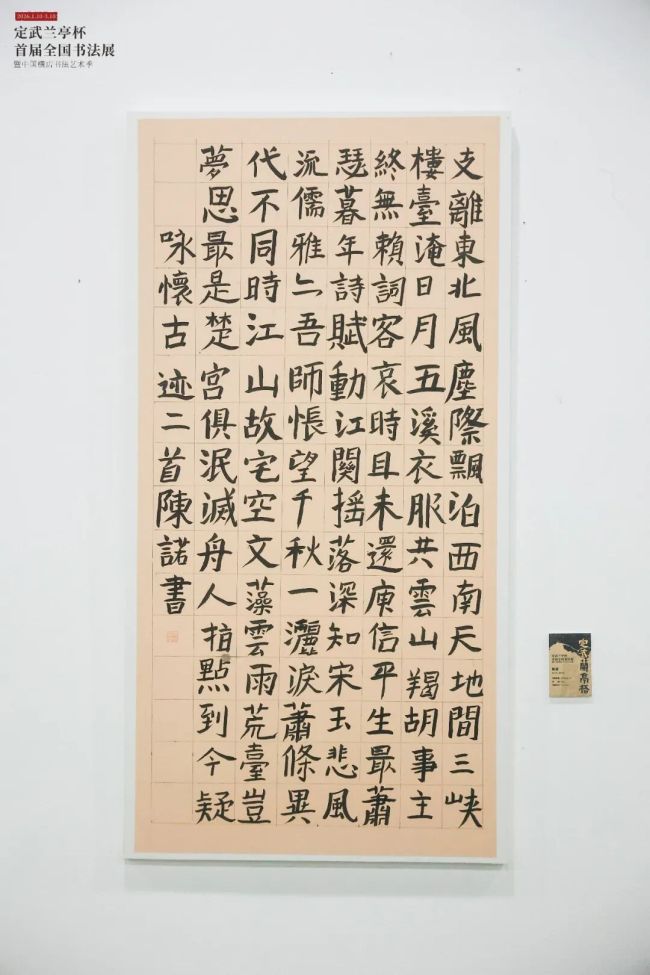 2026.1.10-3.10
定武兰亭杯
首届全国书法展
暨中国横店书法艺术季
支離東北風塵際飄泊西南天地間三峡
樓臺淹日月五溪衣服共雲山羯胡事主
終無賴詞客哀時且未還庾信平生最蕭
瑟暮年詩賦動江關摇落深知宋玉悲風
流儒雅亦吾師悵望千秋一灑淚蕭條異
代不同時江山故宅空文藻雲雨荒臺豈
夢思最是楚宮俱泯滅舟人指點到今疑
咏懷古迹二首陳諾書
定武蘭亭